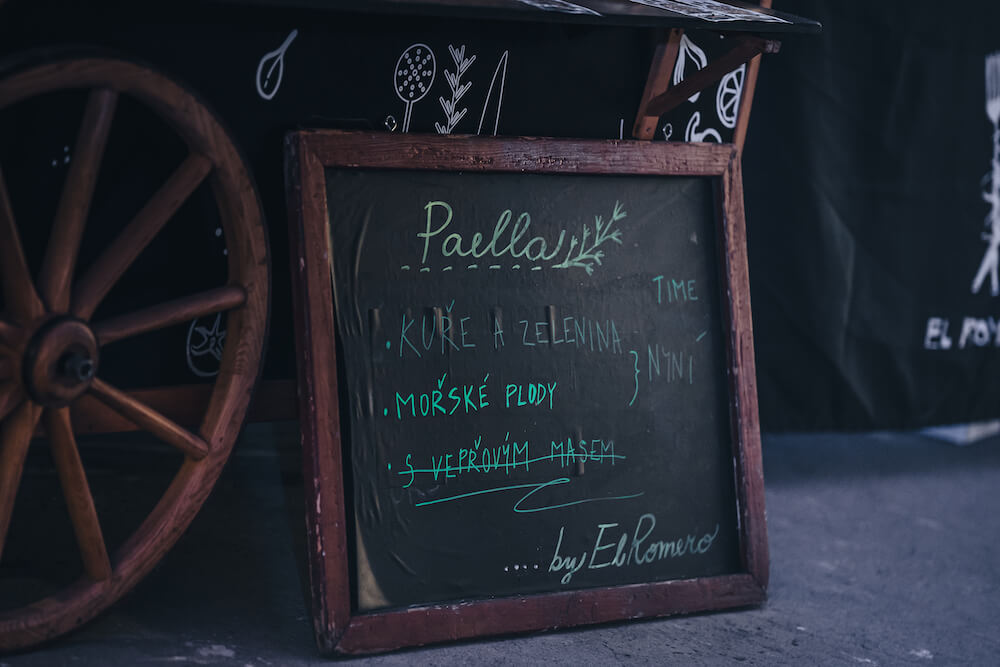 Paella
TIME
• KUŘE A ZELENINA
} NYNÍ
• MOŘSKÉ PLODY
• S VEPŘOVÝM MASEM
.... by El Romero
EL